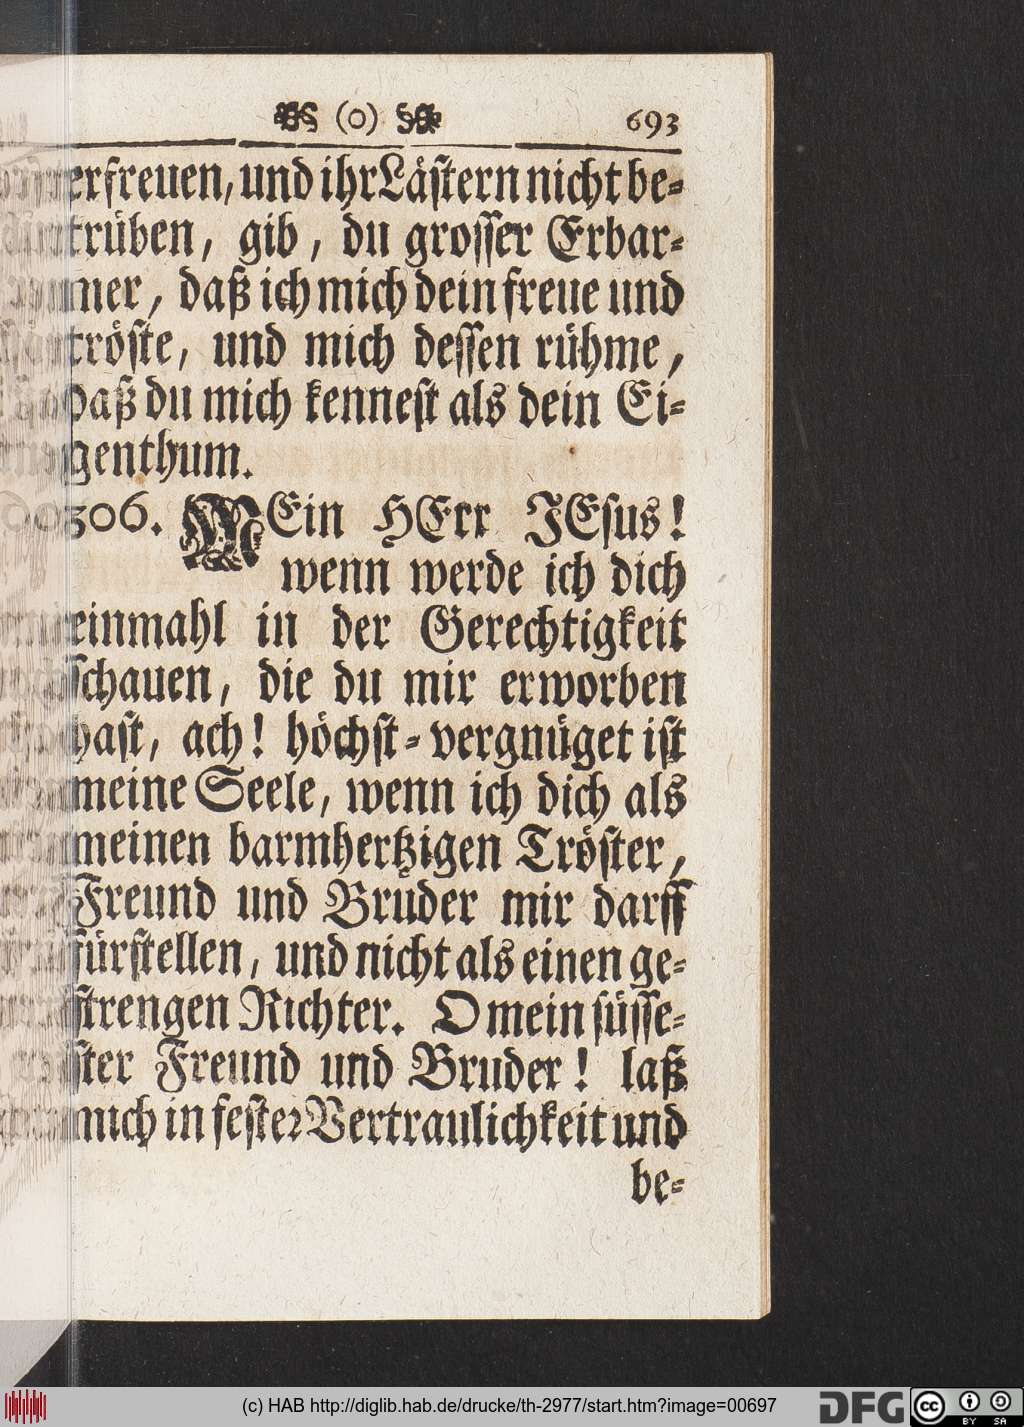 (o) 693
erfreuen, und ihr Lästern nicht be-
trüben, gib, du grosser Erbar-
mer, daß ich mich dein freue und
tröste, und mich dessen rühme,
daß du mich kennest als dein Ei-
genthum.
306. MEin HErr JEsus!
wenn werde ich dich
einmahl in der Gerechtigkeit
schauen, die du mir erworben
hast, ach! höchst-vergnüget ist
meine Seele, wenn ich dich als
meinen barmhertzigen Tröster,
Freund und Bruder mir darff
fürstellen, und nicht als einen ge-
strengen Richter. O mein süsse-
ster Freund und Bruder! laß
mich in fester Vertraulichkeit und
be-
(c) HAB http://diglib.hab.de/drucke/th-2977/start.htm?image=00697
DFG
cc BY SA